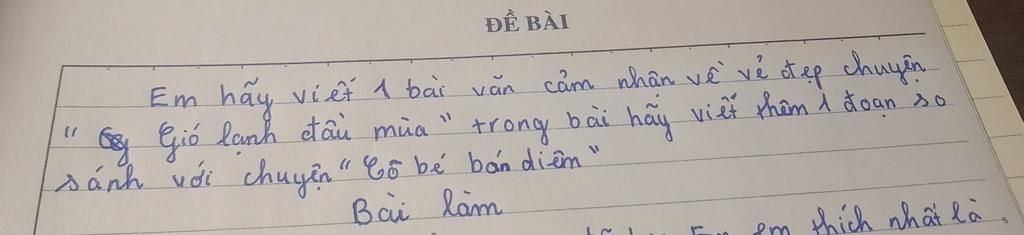 ĐỀ BÀI
Em hãy viết 1 bài văn cảm nhân về vẻ đẹp chuyện
" Gió lạnh đầu mùa" trong bài hãy viết thêm 1 đoạn so
sánh với chuyện "Cô bé bán diêm"
Bài làm
Em em thích nhất là